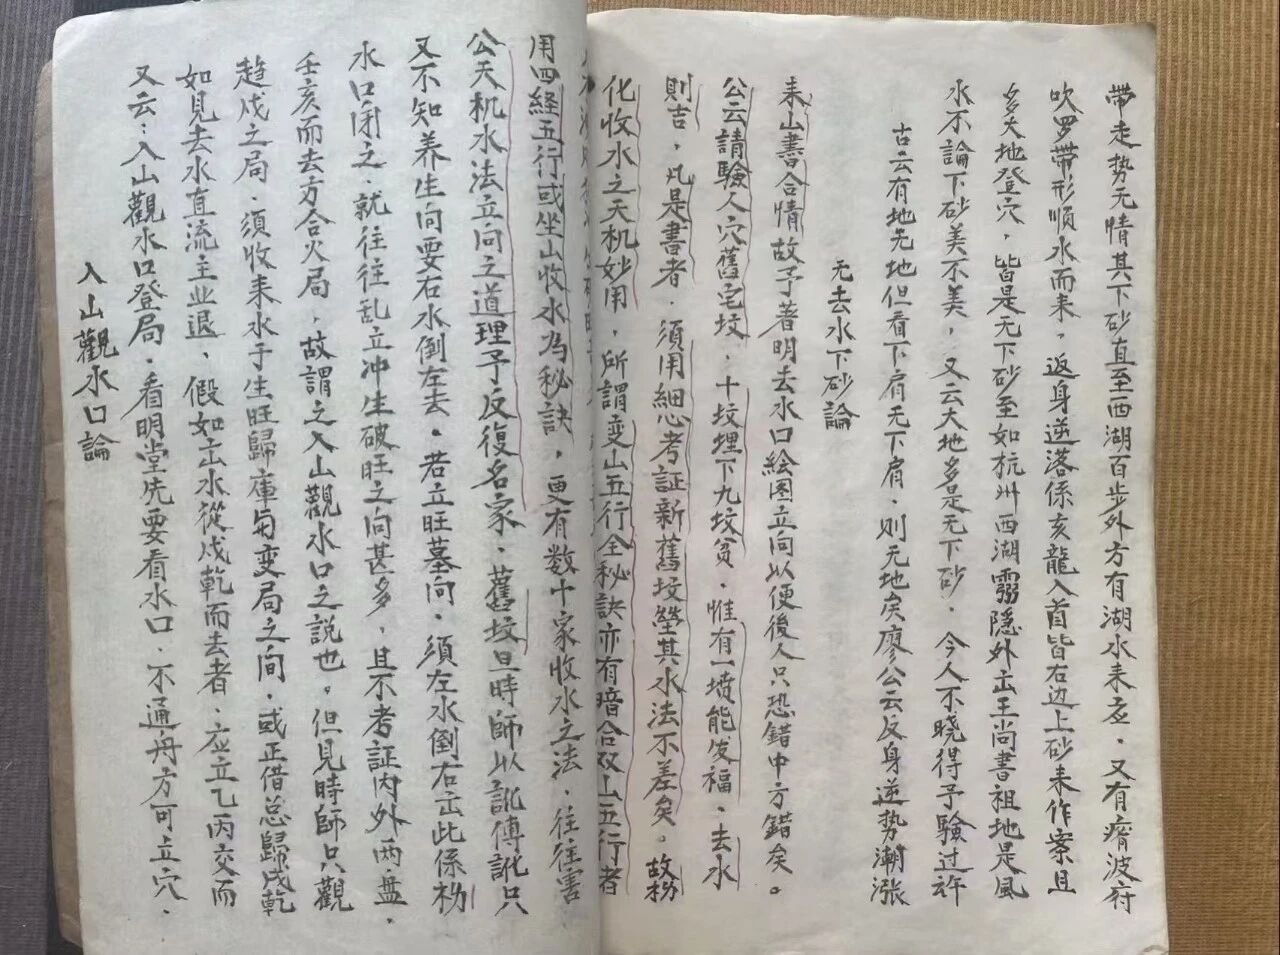 入山觀水口論
又云：入山觀水口登局．看明堂先要看水口．不通舟方可立穴．
如見去水直流主业退．假如出水從戌乾而去者．应立乙丙交而
趋戌之局．须收来水于生旺歸庫每变局之间．或正借总歸戌乾
壬亥而去方合火局．故謂之入山觀水口之説也．但見時師只觀
水口闭之．就往往乱立冲生破旺之向甚多．且不考証内外两盘．
又不知养生向要右水倒左去．若立旺墓向．须左水倒右出此係杨
公天机水法立向之道理予反復名家．舊坟旦時師以訛傳訛只
用四経五行或坐山收水為秘訣，更有数十家收水之法．往往害
化收水之天机妙用．所謂变山五行全秘訣亦有暗合双山五行者
則吉．凡是書者．须用細心考証新舊坟塋其水法不差矣。故杨
公云請驗人穴舊宅坟．十坟埋下九坟贫．惟有一墳能发福．去水
来山書合情故予著明去水口绘图立向以便後人只恐錯中方錯矣。
无去水下砂論
古云有地无地但看下肩无下肩．则无地矣廖公云反身逆势潮漲
水不論下砂美不美．又云大地多是无下砂．今人不晓得予驗过許
多大地登穴．皆是无下砂至如杭州西湖靈隱外出王尚書祖地是風
吹罗带形順水而来．返身逆落係亥龍入首皆右边上砂来作案且
帶走势无情其下砂直至西湖百步外方有湖水来应．又有瘠波府